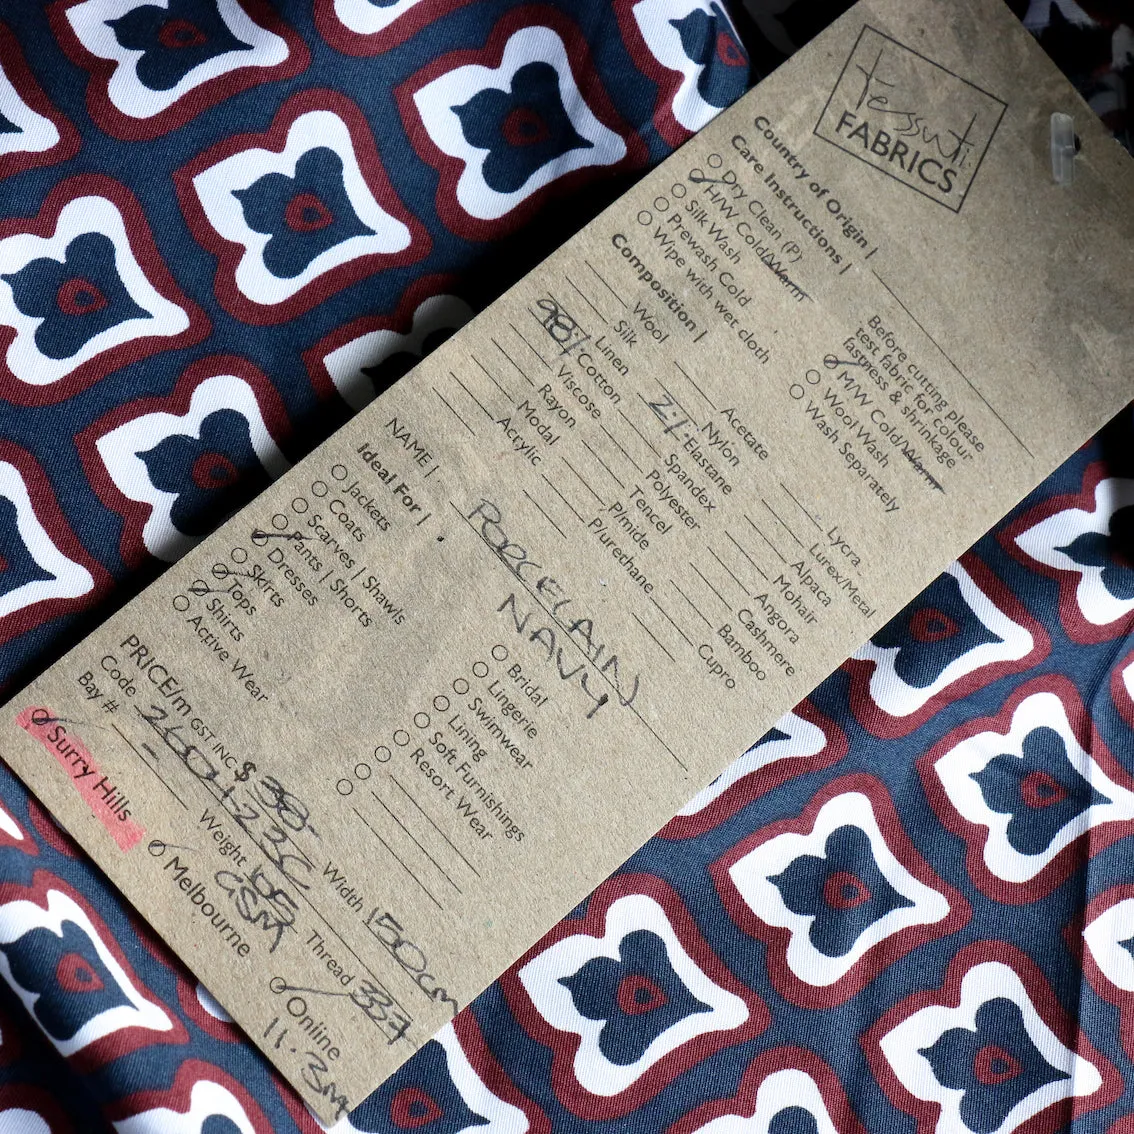 Tessuti
FABRICS
Country of Origin |
Care Instructions |
Dry Clean (P)
H/W Cold/Warm
Silk Wash
Prewash Cold
Wipe with wet cloth
Before cutting please
test fabric for colour
fastness & shrinkage
M/W Cold/Warm
Wool Wash
Wash Separately
Composition |
Wool
Silk
Linen
98% Cotton
Viscose
Rayon
Modal
Acrylic
Acetate
Nylon
2% Elastane
Spandex
Polyester
Tencel
P/mide
P/urethane
Lycra
Lurex/Metal
Alpaca
Mohair
Angora
Cashmere
Bamboo
Cupro
NAME | PORCELAIN
NAVY
Ideal For |
Jackets
Coats
Scarves | Shawls
Pants | Shorts
Dresses
Skirts
Tops
Shirts
Active Wear
Bridal
Lingerie
Swimwear
Lining
Soft Furnishings
Resort Wear
PRICE/m GST INC $ 38- Width 150cm
Code
Bay # Weight 165 GSM Thread 337
Surry Hills Melbourne Online
11.3m